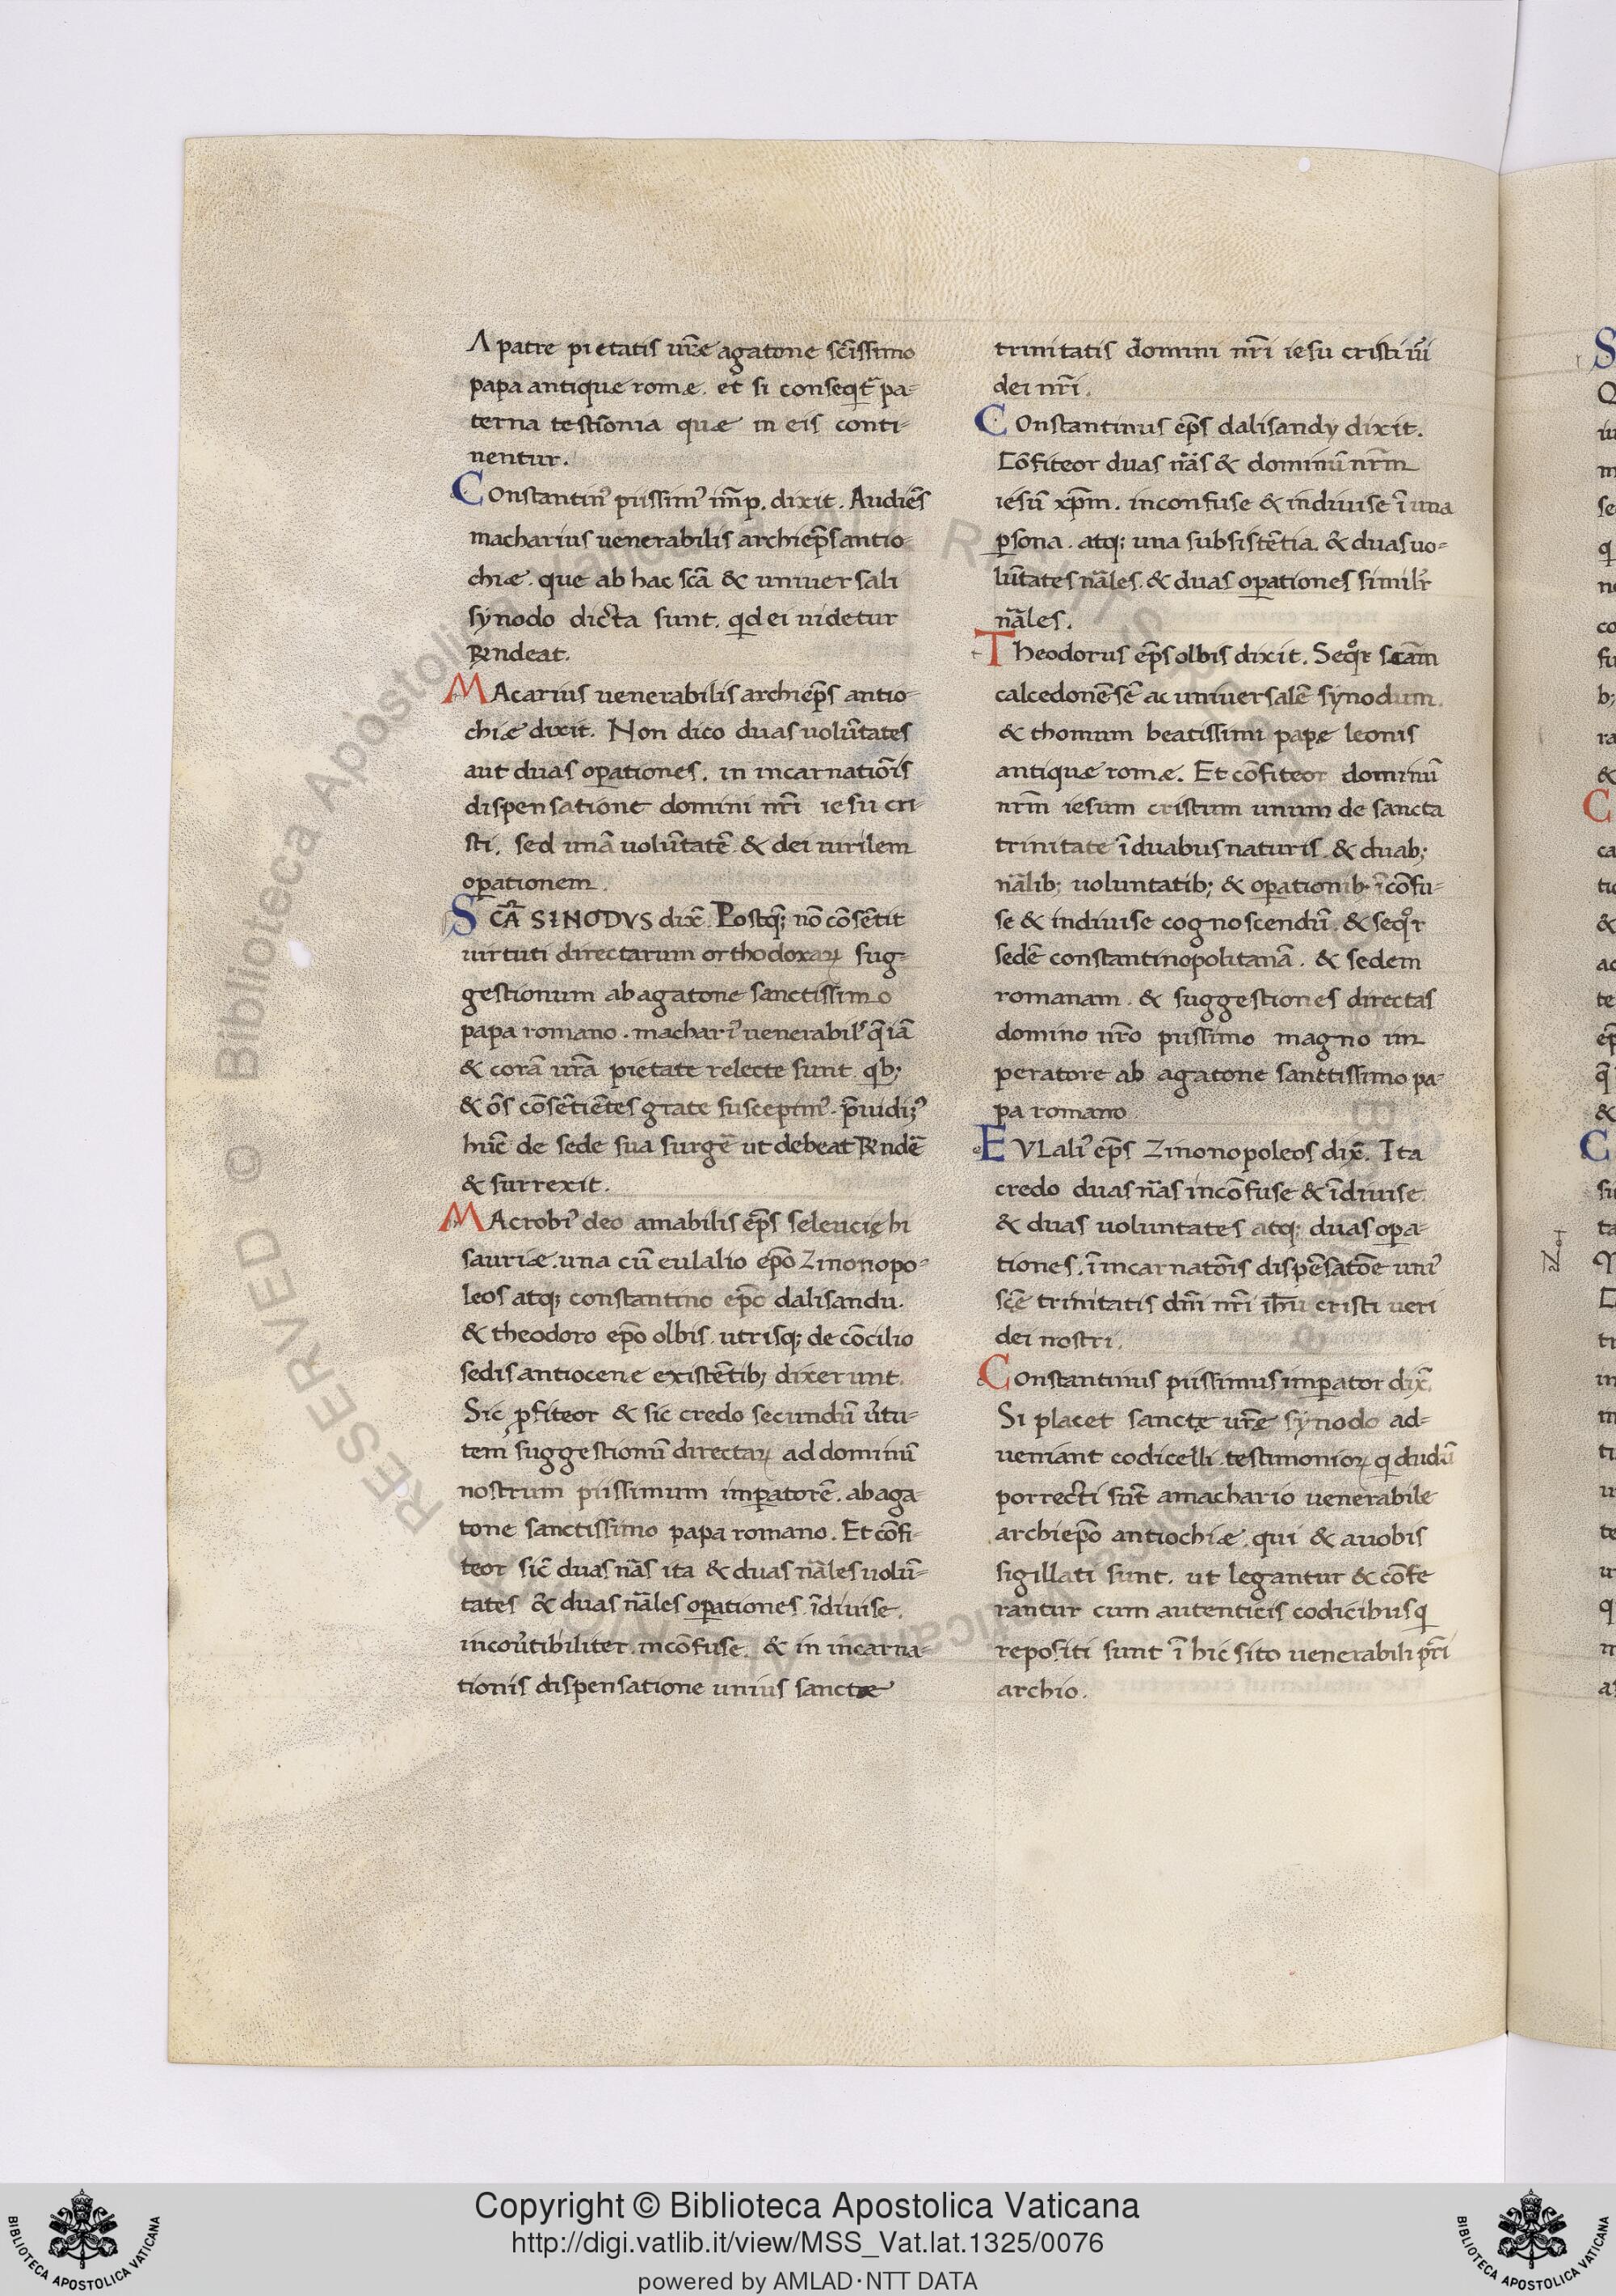 A patre pietatis ur̄e agatone sc̄issimo
papa antique romæ. et si conseqt̄ pa-
terna testīonia quæ in eis conti-
nentur.
Constantin᾽ piissim᾽ im̄p. dixit. Audiēs
macharius uenerabilis archiep̄s antio-
chiæ. que ab hac sc̄a & uniuersali
synodo dicta sunt. qd ei uidetur
Rn̄deat.
MAcarius uenerabilis archiep̄s antio-
chiæ dixit. Non dico duas uolūtates
aut duas oꝑationes. in incarnatiōis
dispensatione domini nr̄i iesu cri-
sti. sed unā uolūtatē & dei uirilem
oꝑationem.
SCĀ SINODVS dix̄. Postq̄; nō cōsētit
uirtuti directarum orthodoxaꝝ sug-
gestionum ab agatone sanctissimo
papa romano. machari᾽ uenerabil᾽ q̄ iā
& corā ur̄a pietate relecte sunt qb;
& ōs cōsētiētes grate suscepim᾽. p̄uidim᾽
hūc de sede sua surgē ut debeat Rn̄dē
& surrexit.
MAcrobi᾽ deo amabilis ep̄s seleucię hi
sauriæ. una cū eulalio ep̄o Zinonopo-
leos atq; constantino ep̄o dalisandu.
& theodoro ep̄o olbis utrisq; de cōcilio
sedis antiocene existētib; dixerunt.
Sic ꝓfiteor & sic credo secundū u᾽tu-
tem suggestionū directaꝝ ad dominū
nostrum piissimum imꝑatorē. ab aga-
tone sanctissimo papa romano. Et cōfi-
teor sic̄ duas nās ita & duas nāles uolū-
tates & duas nāles oꝑationes īdiuise.
incou᾽tibiliter. incōfuse. & in incarna-
tionis dispensatione unius sanctæ
trinitatis domini nr̄i iesu cristi ūi
dei nr̄i.
COnstantinus ep̄s dalisandy dixit.
Cōfiteor duas nās & dominū nr̄m
iesū xp̄m. inconfuse & indiuise ī una
ꝑsona. atq; una subsistētia. & duas uo-
lūtates nāles. & duas oꝑationes similr̄
nāles.
Theodorus ep̄s olbis dixit. Seqͦr sc̄am
calcedonēsē ac uniuersalē synodum.
& thomum beatissimi papę leonis
antiquæ romæ. Et cōfiteor dominū
nr̄m iesum cristum unum de sancta
trinitate ī duabus naturis. & duab;
nālib; uoluntatib; & oꝑationib; īcōfu-
se & indiuise cognoscendū. & seqͦr
sedē constantinopolitanā. & sedem
romanam. & suggestiones directas
domino nr̄o piissimo magno im
peratore ab agatone sanctissimo pa-
pa romano
EVLali᾽ ep̄s Zinonopoleos dix̄. Ita
credo duas nās incōfuse & īdiuise.
& duas uoluntates atq; duas oꝑa-
tiones. ī incarnatōis dispēsatōe uni᾽
sc̄e trinitatis dn̄i nr̄i ih̄u cristi ueri
dei nostri.
Constantinus piissimus imꝑator dix̄.
Si placet sanctę ur̄ę synodo ad-
ueniant codicelli testimonioꝝ q dudū
porrecti sūt a machario uenerabile
archiep̄o antiochiæ. qui & a uobis
sigillati sunt. ut legantur & cōfe
rantur cum autenticis codicibus q
repositi sunt ī hic sito uenerabili pr̄i
archio.
Copyright © Biblioteca Apostolica Vaticana
http://digi.vatlib.it/view/MSS_Vat.lat.1325/0076
powered by AMLAD·NTT DATA